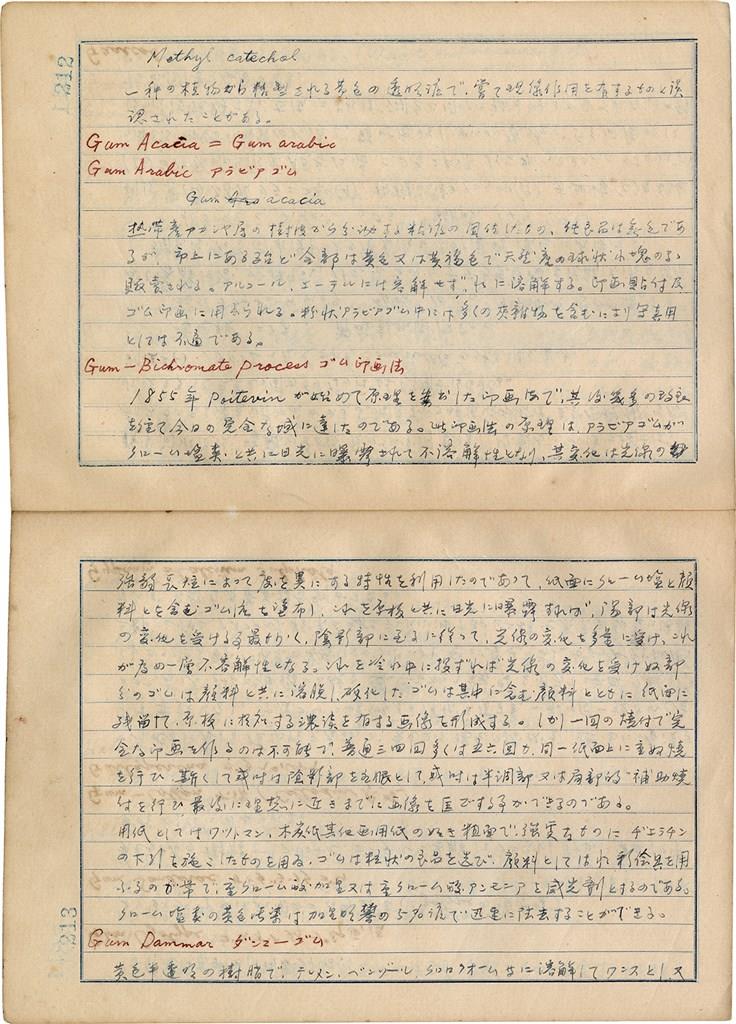 1212
Methyl catechol
一種の植物から
黄色の透明液で、嘗て現像作用を有するものと誤
認されたことがある。
Gum Acacia = Gum arabic
Gum Arabic アラビアゴム
Gum acacia
熱帯産アカシヤ属の樹皮から分泌する粘液の固化したもの、純良品は無色であ
るが、市上にあるものは全部は黄色又は黄褐色で
球状小塊のまゝ
販売される。アルコール、エーテルには溶解せず、水に溶解する。印画貼付及
ゴム印画に用ゐられる。粉状アラビアゴム中には多くの夾雑物を含むにより写真用
としては不適である。
Gum-Bichromate process ゴム印画法
1855年 Poitevin が始めて原理を
した印画法で、其後幾多の改良
を経て今日の完全な域に達したのである。此印画法の原理は、アラビアゴムが
クローム塩類と共に日光に曝露されて不溶解性となり、其変化は光線の
強弱長短によって度を異にする特性を利用したのであって、紙面にクローム塩と顔
料とを含むゴム液を塗布し、これを原板と共に日光に曝露すれば、
部は光線
の変化を受ける事最も少く、陰影部に至るに従って、光線の変化を多量に受け、これ
が為め一層不溶解性となる。これを冷水中に投ずれば光線の変化を受けぬ部
分のゴムは顔料と共に溶脱し、硬化したゴムは其中に含む顔料とともに紙面に
残留して、原板に相応する濃淡を有する画像を形成する。しかし一回の焼付で完
全な印画を作るのは不可能で、普通三四回多くは五六回か、同一紙面上に重ね焼
を行ひ、斯くして或时は陰影部を主眼として、或时は半調部又は局部的補助焼
付を行ひ最後に理想に近きまでに画像を
する事ができるのである。
用紙としてはワットマン、木炭紙其他画用紙の如き粗面で、強靱なものにゼラチン
の下引を施こしたものを用ゐ、ゴムは粒状の良品を選び、顔料としては水彩絵具を用
ふるのが常で、重クローム酸加里又は重クローム酸アンモニアを感光剤とするのである。
クローム塩類の黄色汚染は加里明礬の5%液で迅速に除去することができる。
Gum Dammar ダンマーゴム
黄色半透明の樹脂で、テレメン、ベンゾール、クロロフオーム等に溶解してワニスとし、又
213